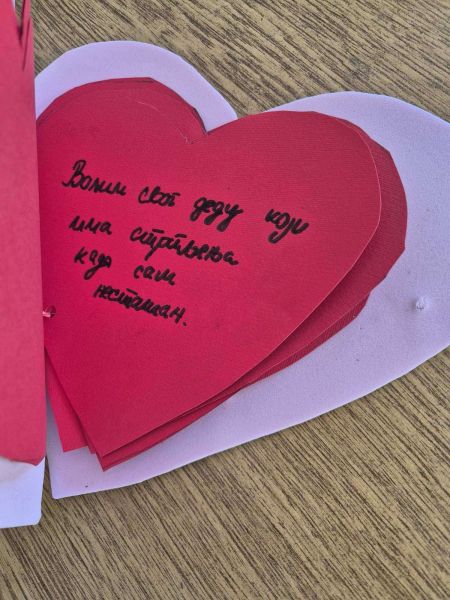 Волим свог деду који
има стрпљења
када сам
несташан.